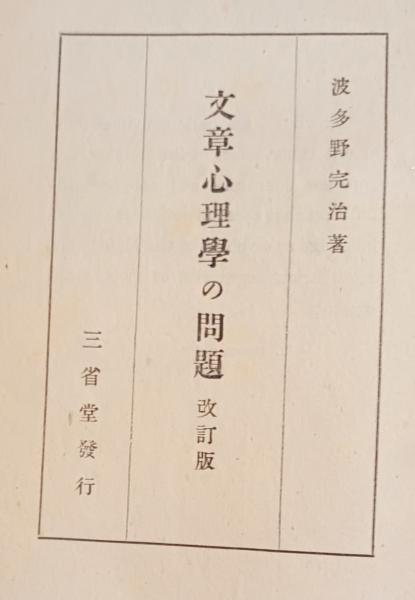 波多野完治著
文章心理學の問題 改訂版
三省堂發行